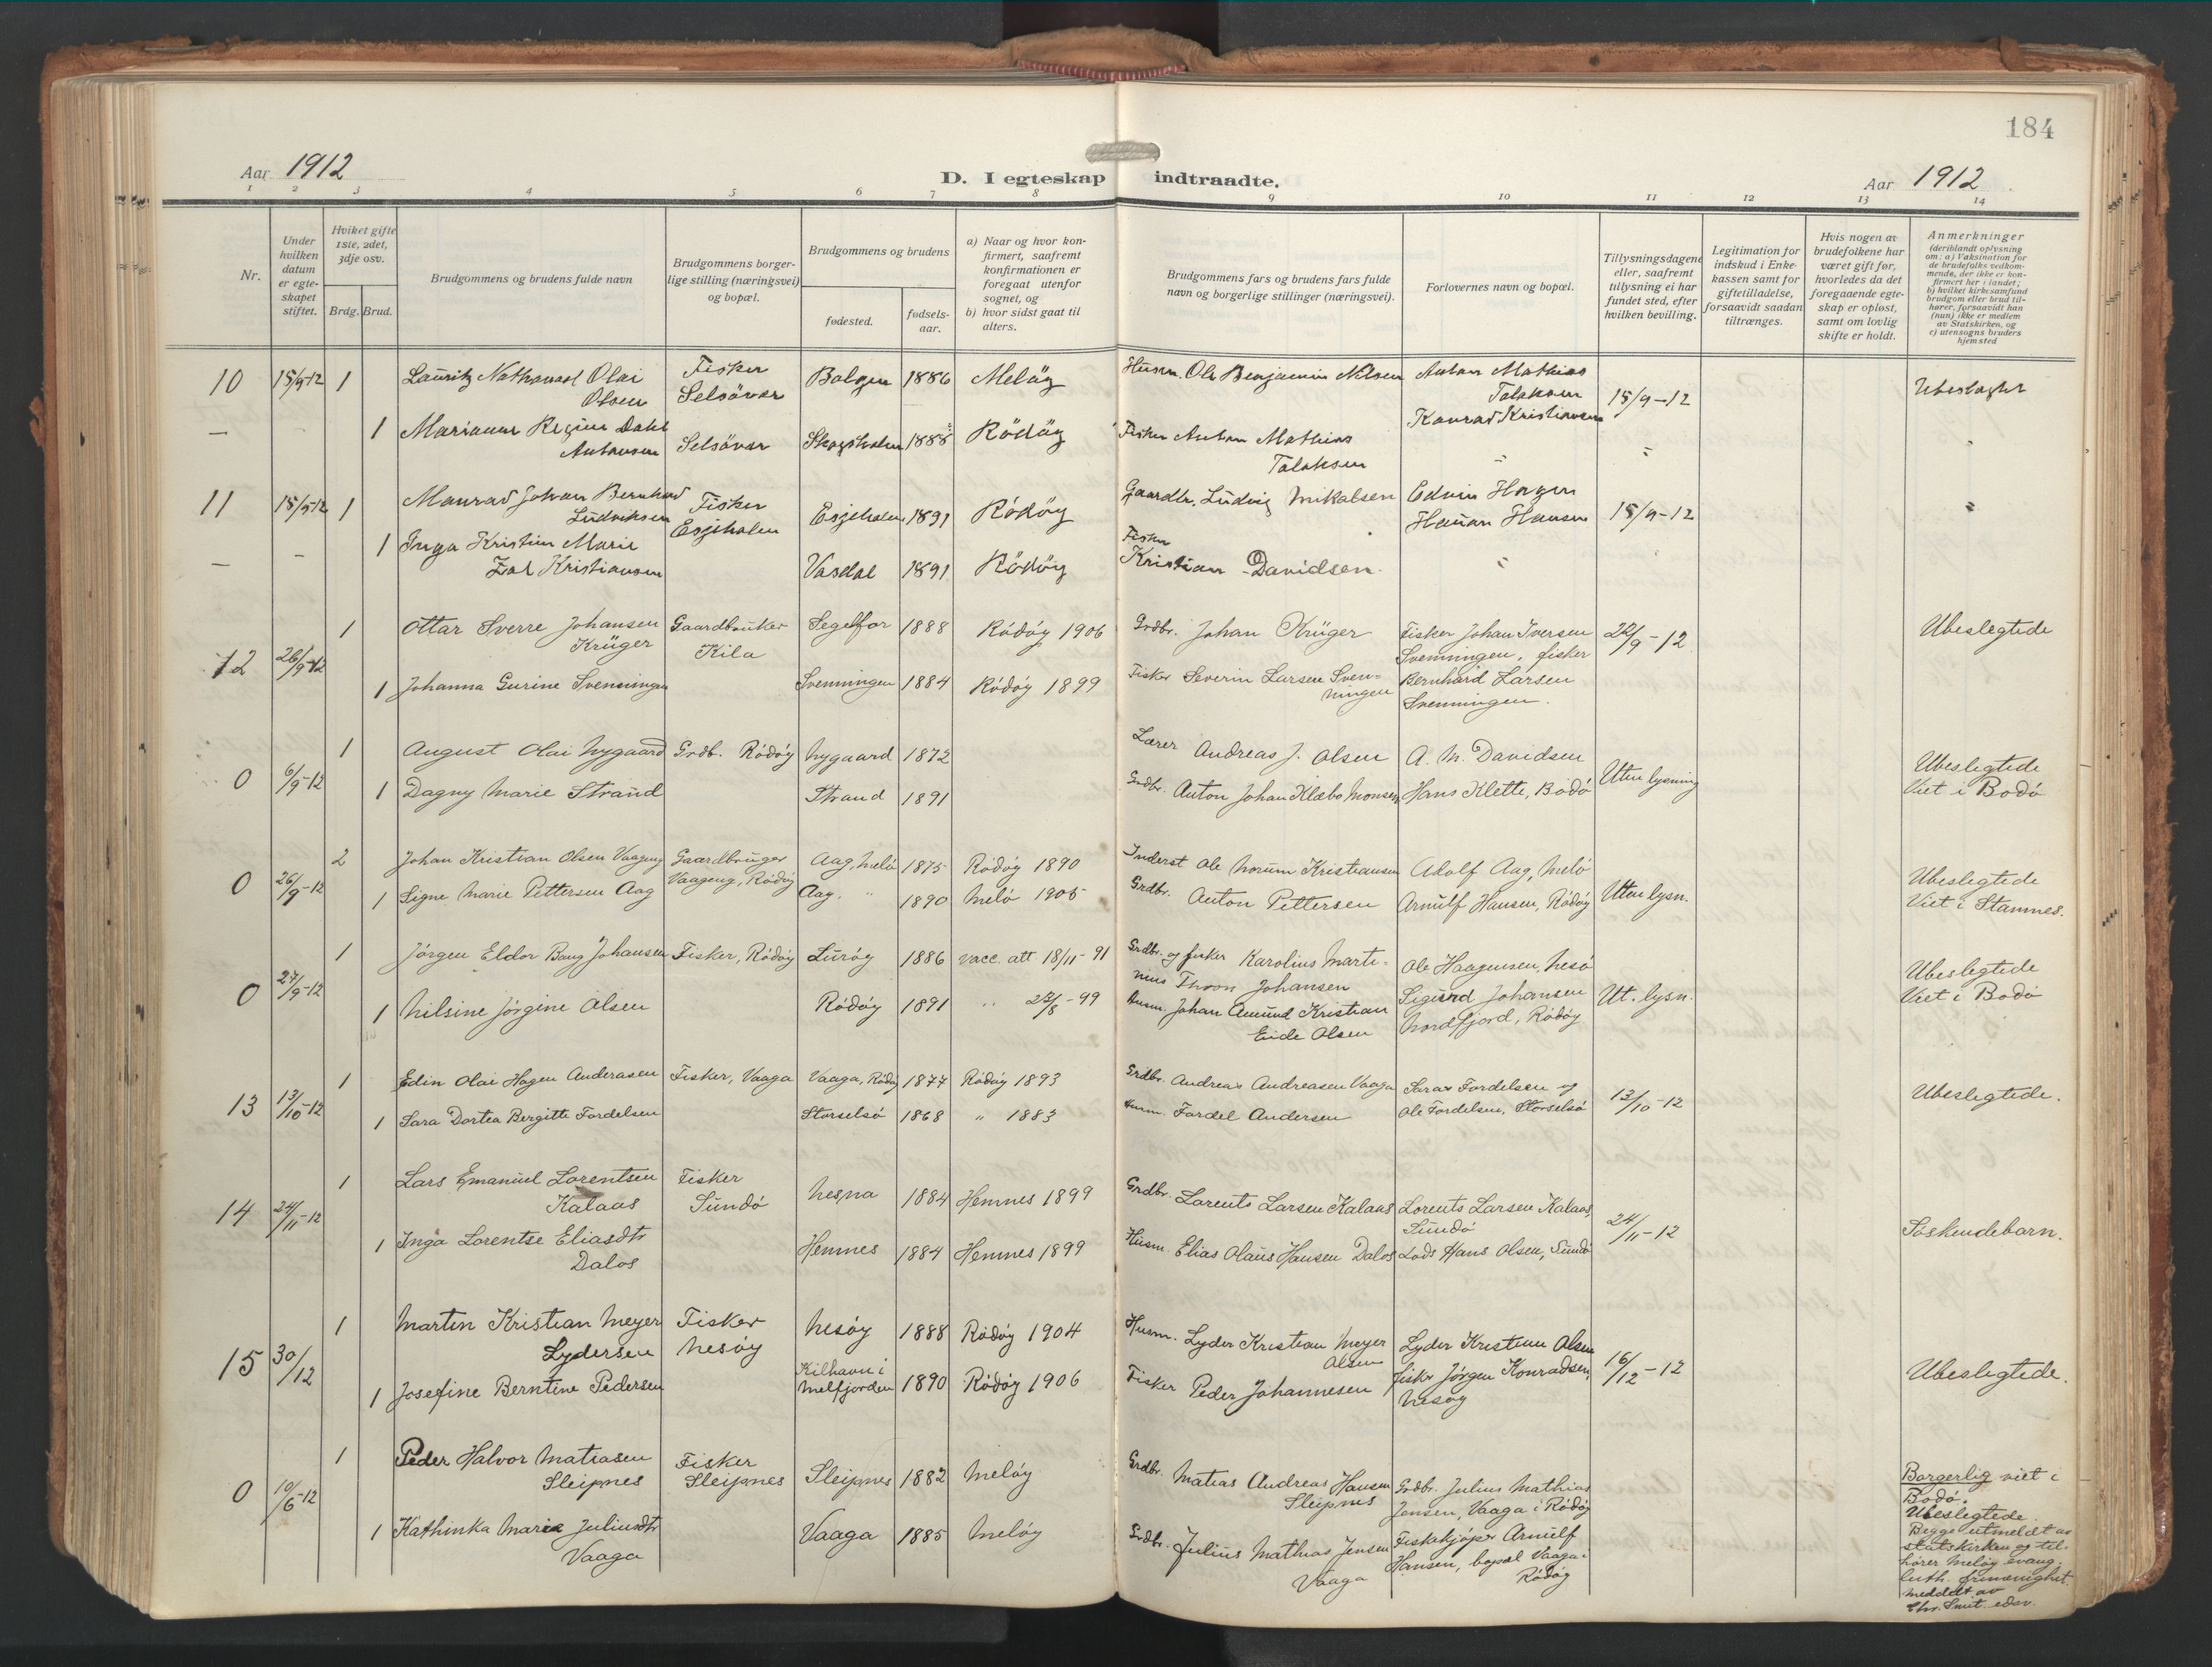 184
Aar 1912
D. I egteskap indtraadte.
Aar 1912
1 2 3 4 5 6 7 8 9 10 11 12 13 14
Nr.
Under hvilken datum er egteskapet stiftet.
Hviket gifte 1ste, 2det, 3dje osv.
Brdg. Brud.
Brudgommens og brudens fulde navn
Brudgommens borgerlige stilling (næringsvei) og bopæl.
Brudgommens og brudens
fødested.
fødselsaar.
a) Naar og hvor konfirmert, saafremt konfirmationen er foregaat utenfor sognet, og
b) hvor sidst gaat til alters.
Brudgommens fars og brudens fars fulde navn og borgerlige stillinger (næringsvei).
Forlovernes navn og bopæl.
Tillysningsdagene eller, saafremt tillysning ei har fundet sted, efter hvilken bevilling.
Legitimation for indskud i Enkekassen samt for giftetilladelse, forsaavidt saadan tiltrænges.
Hvis nogen av brudefolkene har været gift før, hvorledes da det foregaaende egteskap er opløst, samt om lovlig skifte er holdt.
Anmerkninger
(deriblandt oplysning om: a) Vaksination for de brudefolks vedkommende, der ikke er konfirmert her i landet; b) hvilket kirkesamfund brudgom eller brud tilhører, forsaavidt han (hun) ikke er medlem av Statskirken, og c) utensogns bruders hjemsted
10 15/9-12 1 Lauritz Nathanael Olai Olsen Fisker Selsövær Bolgen 1886 Melöy Husm. Ole Benjamin Nilsen Anton Mathias Talaksen Konrad Kristiansen 15/9-12 Ubeslægtet
— 1 Marianne Regine Dahl Antonsen Selsövær Skogsholmen 1888 Rödöy Fisker Anton Mathias Talaksen " " "
11 15/9-12 1 Manrad Johan Bernhard Ludviksen Fisker Esjeholmen Esjeholmen 1891 Rödöy Gaardbr. Ludvig Mikalsen Edvin Hagen Hauan Hansen 15/9-12 "
— – 1 Inga Kristine Marie Zal Kristiansen Vasdal 1891 Rödöy Fisker Kristian Davidsen "
12 26/9-12 1 Ottar Sverre Johansen Krüger Gaardbruker Kila Segelfor 1888 Rödöy 1906 Grdbr. Johan Krüger Fisker Johan Iversen Svenningen, fisker 22/9-12 Ubeslegtede
1 Johanna Gurine Svenningen Svenningen 1884 Rödöy 1899 Fisker Severin Larsen Svenningen Bernhard Larsen Svenningen.
0 6/9-12 1 August Olai Nygaard Grdb. Rödöy Nygaard 1872 Lærer Andreas J. Olsen A. M. Davidsen Uten lysning Ubeslegtede
1 Dagny Marie Strand Strand 1891 Grdbr. Anton Johan Klæbo Monsen Hans Klette, Bodö Viet i Bodö
0 26/9-12 2 Johan Kristian Olsen Vaageng Gaardbruger Vaageng, Rödöy Aag, Melö 1875 Rödöy 1890 Inderst Ole Norum Kristiansen Adolf Aag, Melö Uten lysn. Ubeslegtede
1 Signe Marie Pettersen Aag Aag. " 1890 Melö 1905 Grdbr. Anton Pettersen Arnulf Hansen, Rödöy Viet i Stamnes.
0 27/9-12 1 Jørgen Eldor Bang Johansen Fisker, Rödöy Luröy 1886 vacc. att 18/11-91 Grdbr. og fisker Karolius Martinius Thron Johansen Ole Haagensen, Nesö Ut. lysn. Ubeslegtede
1 Nilsine Jørgine Olsen Rödöy 1891 " 27/8-99 Husm. Johan Amund Kristian Eide Olsen Sigurd Johansen Nordfjord, Rödöy Viet i Bodö
13 13/10-12 1 Edin Olai Hagen Anderasen Fisker, Vaaga Vaaga, Rödöy 1877 Rödöy 1893 Grdbr. Andreas Andreasen Vaaga Saras Fordelsen og 13/10-12 Ubeslegtede.
1 Sara Dortea Bergitte Fordelsen Storselsö 1868 " 1883 Husm. Fordel Andersen Ole Fordelsen, Storselsö
14 24/11-12 1 Lars Emanuel Lorentsen Kalaas Fisker Sundö Nesna 1884 Hemnes 1899 Grdbr. Lorents Larsen Kalaas Lorents Larsen Kalaas, Sundö 24/11-12 Söskendebarn.
1 Inga Lorentse Eliasdtr Dalos Hemnes 1884 Hemnes 1899 Husm. Elias Olaus Hansen Dalos Lods Hans Olsen, Sundö
15 30/12 1 Martin Kristian Meyer Lydersen Fisker Nesöy Nesöy 1888 Rödöy 1904 Husm. Lyder Kristian Meyer Olsen Lyder Kristian Olsen 16/12-12 Ubeslegtede.
1 Josefine Berntine Pedersen Kilhavn i Melfjorden 1890 Rödöy 1906 Fisker Peder Johannesen fisker Jørgen Konradsen, Nesöy
0 10/6-12 1 Peder Halvor Matiasen Sleipnes Fisker Sleipnes Sleipnes 1882 Melöy Grdbr. Matias Andreas Hansen Sleipnes Grdbr. Julius Mathias Jensen, Vaaga i Rödöy Borgerlig viet i Bodö. Ubeslegtede.
1 Kathinka Marie Juliusdtr Vaaga Vaaga 1885 Melöy Grdbr. Julius Mathias Jensen Vaaga Fiskekjöper Arnulf Hansen, bopæl Vaaga i Rödöy Begge utmeldt av statskirken og tilhører Melöy evang. luth. frimenighet. meddelt av